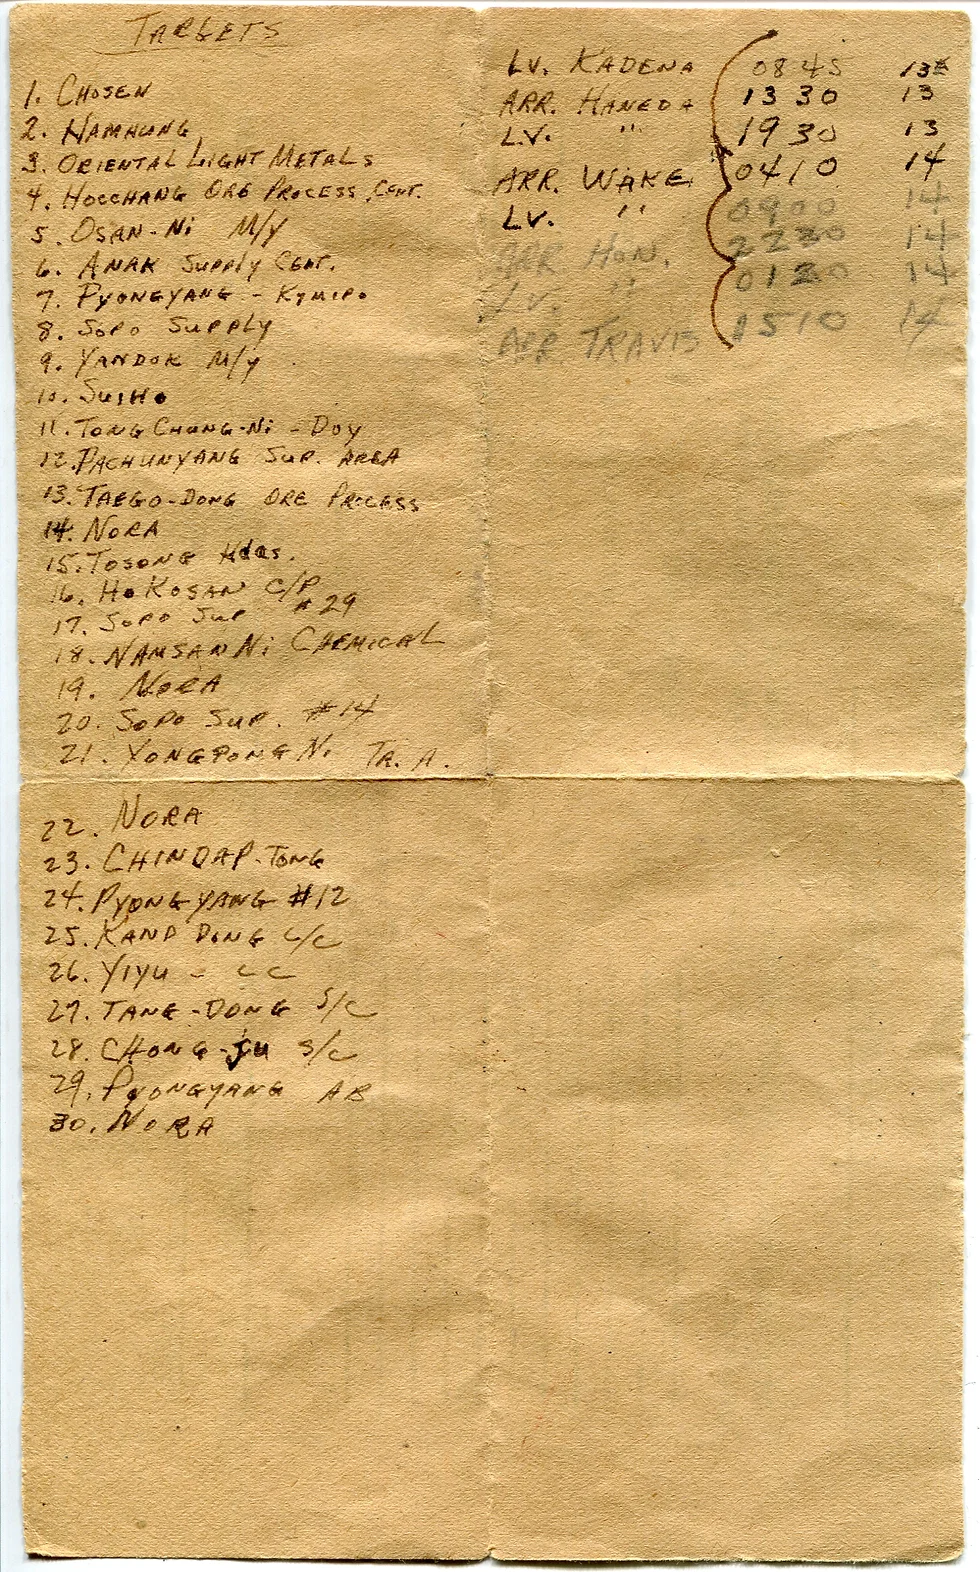 TARGETS
1. CHOSEN
2. HAMHUNG
3. ORIENTAL LIGHT METALS
4. HOCCHANG ORE PROCESS. CENT.
5. OSAN-NI M/Y
6. ANAK SUPPLY CENT.
7. PYONGYANG - KYMIPO
8. SOPO SUPPLY
9. YANDOK M/Y
10. SUIHO
11. TONG CHUNG-NI - DOY
12. PACHUNYANG SUP. AREA
13. TAEGO-DONG ORE PROCESS
14. NORA
15. TOSONG Hdqs.
16. HOKOSAN C/P
17. SOPO SUP #29
18. NAMSAN NI CHEMICAL
19. NORA
20. SOPO SUP. #14
21. YONGPONG NI TR. A.
22. NORA
23. CHINDAP-TONG
24. PYONGYANG #12
25. KANP DONG C/C
26. YIYU - CC
27. TANG-DONG S/C
28. CHONG-JU S/C
29. PYONGYANG AB
30. NORA
LV. KADENA 0845 13
ARR. HANEDA 1330 13
LV. " 1930 13
ARR. WAKE 0410 14
LV. " 0900 14
ARR HON. 2220 14
LV. " 0120 14
ARR TRAVIS 1510 14